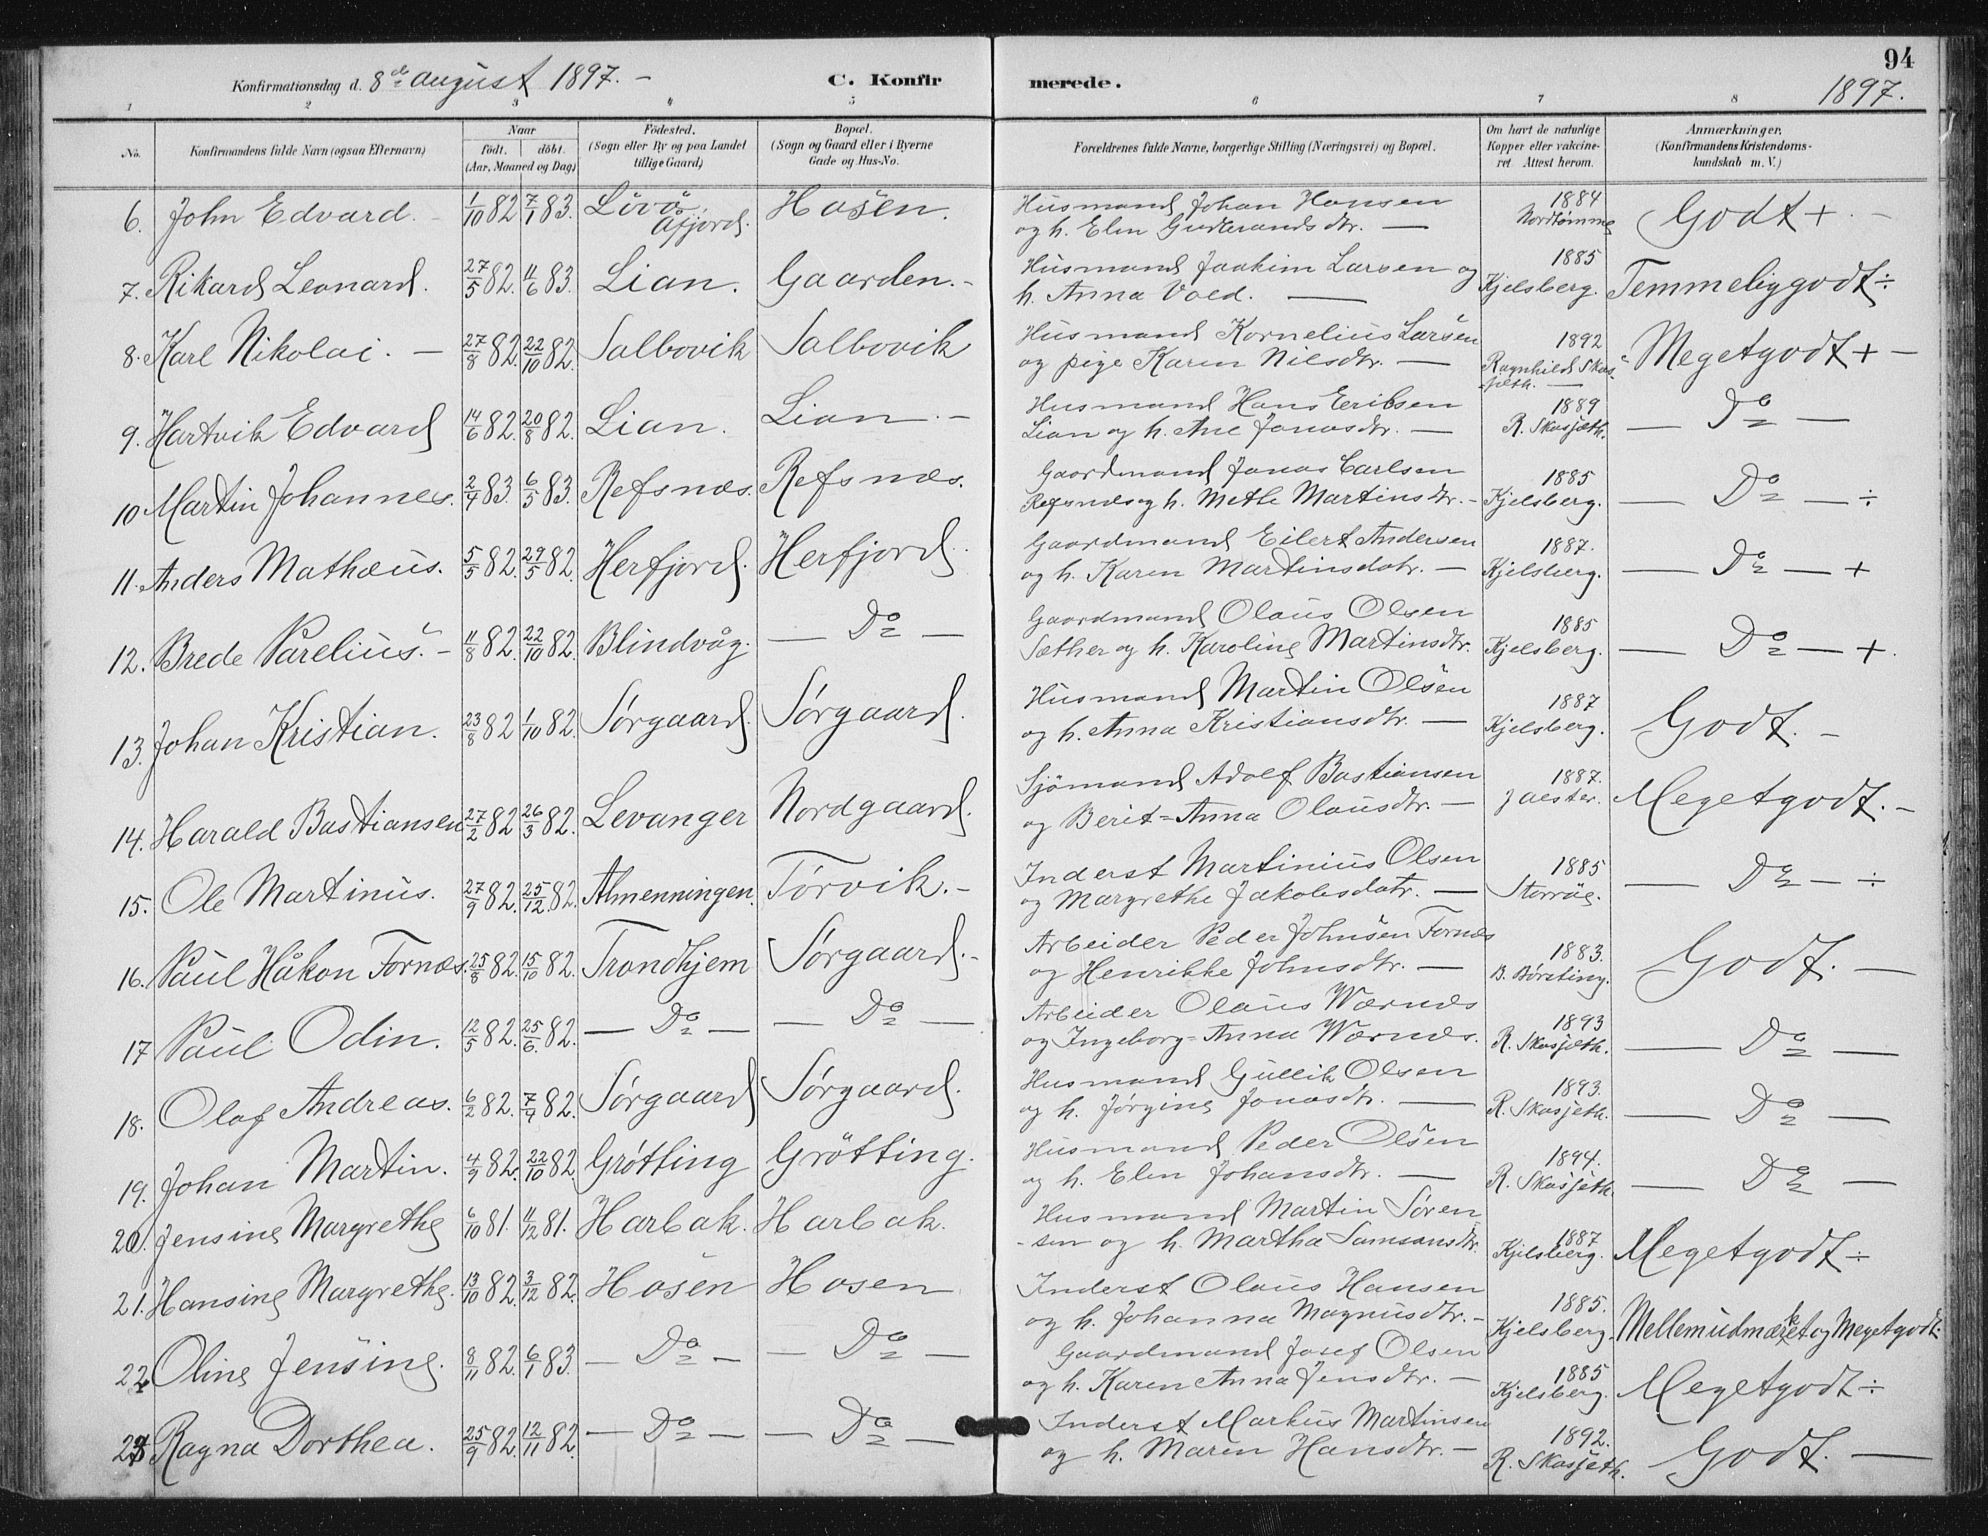 94
Konfirmationsdag d. 8de august 1897. –
C. Konfir
merede.
1897.
1 2 3 4 5 6 7 8
No.
Konfirmandens fulde Navn (ogsaa Efternavn)
Naar
födt. döbt.
(Aar, Maaned og Dag)
Födested.
(Sogn eller By og paa Landet
tillige Gaard)
Bopæl.
(Sogn og Gaard eller i Byerne
Gade og Hus-No.
Forældrenes fulde Navne, borgerlige Stilling (Næringsvei) og Bopæl.
Om havt de naturlige
Kopper eller vakcine-
ret. Attest herom.
Anmærkninger.
(Konfirmandens Kristendoms-
kundskab m. V.)
6. John Edvard. 1/10 82 7/1 83. Lövö Hosen. Husmand Johan Hansen 1884 Godt + –
Åfjord. og h. Elen dtr. — Nordtømme
7. Rikard Leonard. 27/5 82. 11/6 83. Lian. Gaarden. – Husmand Joakim Larsen og 1885 Temmeligodt ÷
h. Anna Vold. — Kjelsberg.
8. Karl Nikolai. — 27/8 82. 22/10 82. Salbovik Salbovik Husmand Kornelius Larsen 1892 Megetgodt + –
og pige Karen Nilsdtr. — Ragnhild Skas-
jeth. —
9. Hartvik Edvard 14/6 82. 20/8 82. Lian. Lian. – Husmand Hans Eriksen 1889 — Do —
Lian og h. Ane Jonasdtr. — R. Skasjeth.
10 Martin Johannes. 2/4 83. 6/5 83. Refsnæs. Refsnæs. Gaardmand Jonas Carlsen 1885 — Do — ÷
Refsnæs og h. Mette Martinsdtr. – Kjelsberg.
11. Anders Mathæus. 5/5 82. 29/5 82. Herfjord. Herfjord. Gaardmand Eilert Andersen 1887. — Do — +
og h. Karen Martinsdatr. — Kjelsberg.
12. Brede Parelius. – 11/8 82. 22/10 82. Blindvåg. — Do — Gaardmand Olaus Olsen 1885 — Do — +.
Sæther og h. Karoline Martinsdtr. Kjelsberg.
13. Johan Kristian. 23/8 82 1/10 82. Sørgaard. Sørgaard. Husmand Martin Olsen 1887 Godt. –
og h. Anna Kristiansdtr. — Kjelsberg.
14. Harald Bastiansen 27/2 82 26/3 82. Levanger Nordgaard. Sjömand Adolf Bastiansen 1887. Megetgodt. –
og Berit=Anna Olausdtr. —
15. Ole Martinus. 27/9 82. 25/12 82. Almenningen. Tørvik. – Inderst Martinius Olsen 1885 — Do — ÷
og Margrethe Jakobsdatr. —
16. Paul Håkon Fornæs. 25/8 82. 15/10 82. Trondhjem Sørgaard. – Arbeider Peder Johnsen Fornæs 1883. Godt. —
og Henrikke Johnsdtr. — B. Børsting.
17 Paul Odin. 12/5 82. 25/6 82. — Do — — Do — Arbeider Olaus Wærnæs 1893 — Do —
og Ingeborg=Anna Wærnæs. R. Skasjeth.
18. Olaf Andreas. 6/2 82. 7/9 82. Sørgaard Sørgaard. Husmand Gullik Olsen 1893. — Do —
og h. Jørgine Jonasdtr. — R. Skasjeth.
19. Johan Martin. 4/9 82. 22/10 82. Grøtting Grötting. Husmand Peder Olsen 1894. — Do —
og h. Elen Johansdtr. — R. Skasjeth.
20. Jensine Margrethe 6/10 81. 11/12 81. Harbak. Harbak. Husmand Martin Søren 1887. Megetgodt ÷
– sen og h. Martha Samsonsdtr. Kjelsberg.
21. Hansine Margrethe. 13/10 82. 3/12 82. Hosen Hosen Inderst Olaus Hansen 1885. Mellemudmærket og Megetgodt.
og h. Johanna Magnusdtr. – Kjelsberg.
22 Oline Jensine. 8/11 82. 6/1 83. — Do — — Do — Gaardmand Josef Olsen 1885 Megetgodt ÷
og h. Karen Anna Jensdtr. – Kjelsberg.
23 Ragna Dorthea. 25/9 82. 12/11 82. — Do — — Do — Inderst Markus Martinsen 1892. Godt. —
og h. Maren Hansdtr. – R. Skasjeth.